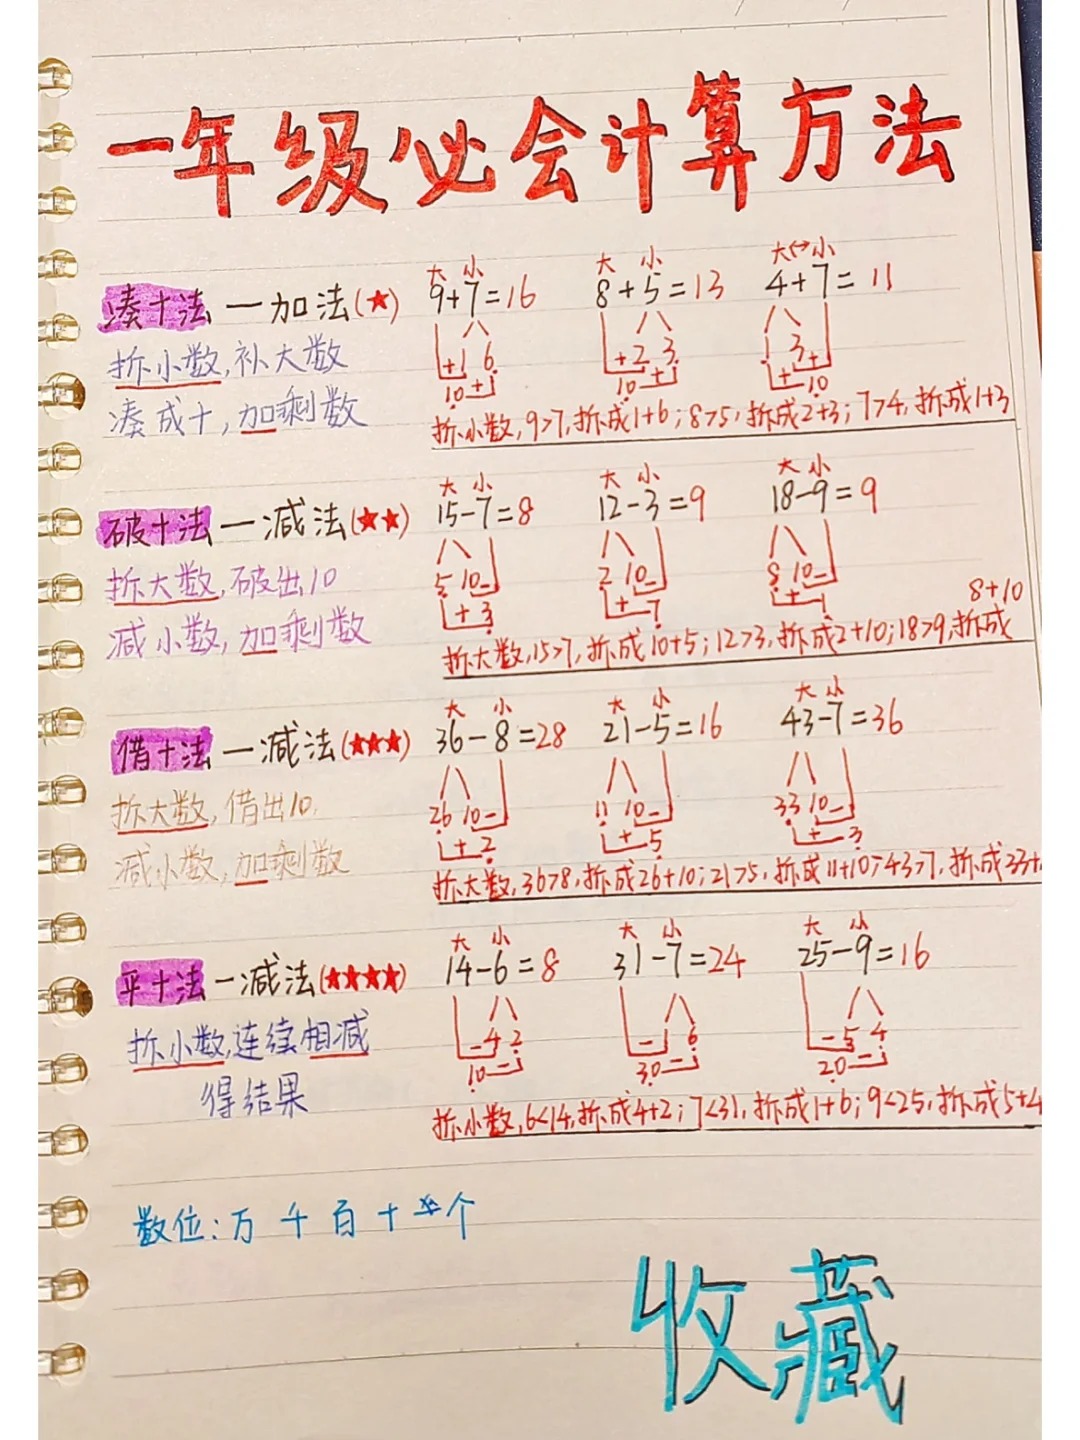 一年级必会计算方法
大 小 大 小 大↔小
凑十法一加法(★) 9+7=16 8+5=13 4+7=11
拆小数,补大数 +1 6 +2 3 1 3+
凑成十,加剩数 10+ 10+ +10
拆小数,9>7,拆成1+6;8>5,拆成2+3;7>4,拆成1+3
大 小 大 小 大 小
破十法一减法(★★) 15-7=8 12-3=9 18-9=9
拆大数,破出10 5 10- 2 10- 8 10-
减小数,加剩数 +3 +7 +1
8+10
拆大数,15>7,拆成10+5;12>3,拆成2+10;18>9,拆成
大 小 大 小 大 小
借十法一减法(★★★) 36-8=28 21-5=16 43-7=36
拆大数,借出10, 26 10- 11 10- 33 10-
减小数,加剩数 +2 +5 +3
拆大数,36>8,拆成26+10;21>5,拆成11+10;43>7,拆成33+
大 小 大 小 大 小
平十法一减法(★★★★) 14-6=8 31-7=24 25-9=16
拆小数,连续相减 -4 2 - 6 -5 4
得结果 10- 30- 20-
拆小数,6<14,拆成4+2;7<31,拆成1+6;9<25,拆成5+4
数位:万 千 百 十 个
收藏